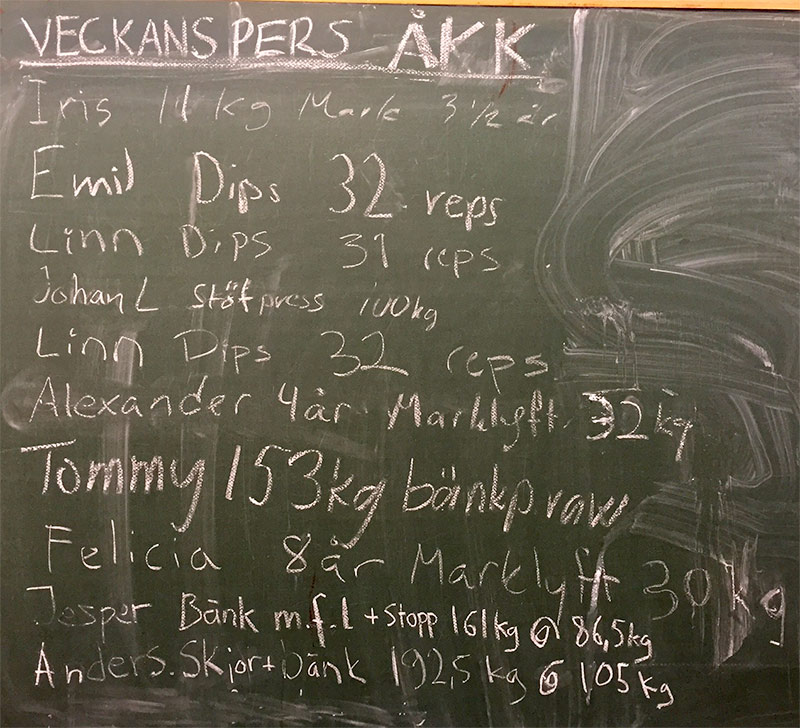 VECKANS PERS ÅKK
Iris 11 kg Mark 3 1/2 år
Emil Dips 32 reps
Linn Dips 31 reps
Johan L Stötpress 100kg
Linn Dips 32 reps
Alexander 4år Marklyft 32kg
Tommy 153kg bänkp raw
Felicia 8år Marklyft 30kg
Jesper Bänk m.f.l + Stopp 161kg @ 86,5kg
Anders. Skjort bänk 192,5 kg @ 105 kg